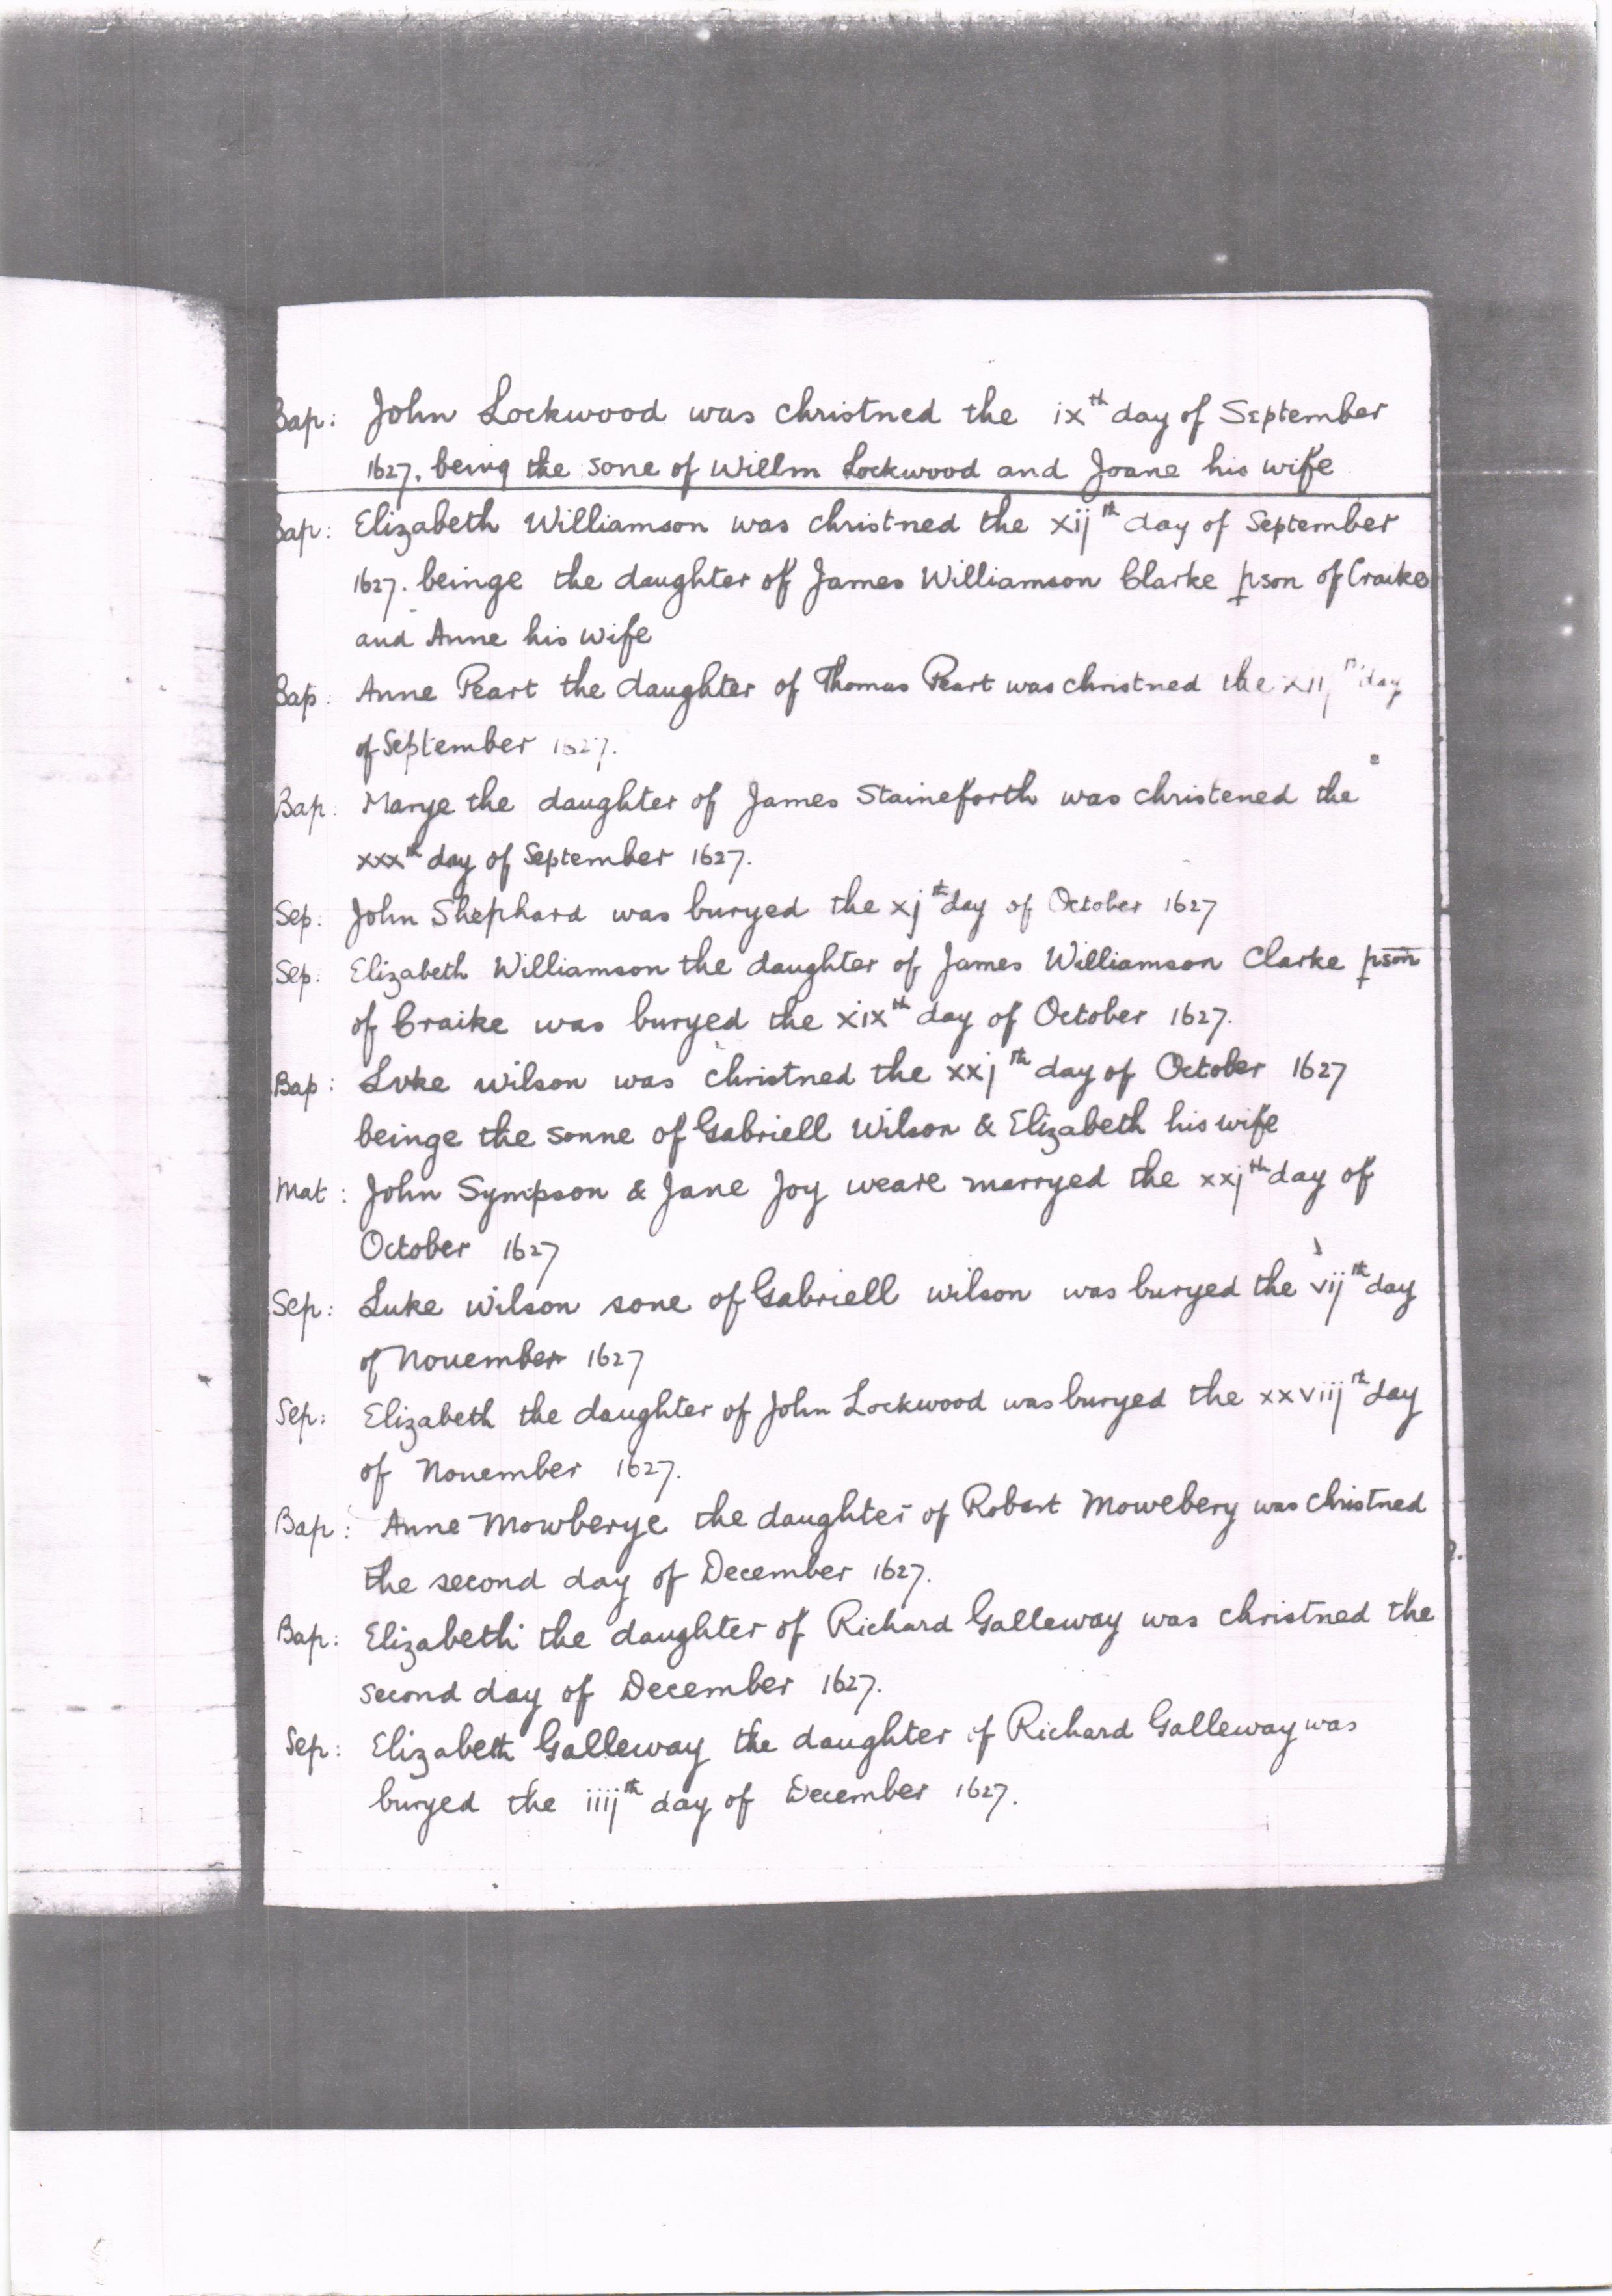 Bap: John Lockwood was christned the ixth day of September
1627. being the sone of Willm Lockwood and Joane his wife
Bap: Elizabeth Williamson was christned the xijth day of September
1627. beinge the daughter of James Williamson Clarke pson of Craike
and Anne his wife
Bap: Anne Peart the daughter of Thomas Peart was christned the xijth day
of September 1627.
Bap: Marye the daughter of James Staineforth was christened the
xxxth day of September 1627.
Sep: John Shephard was buryed the xjth day of October 1627
Sep: Elizabeth Williamson the daughter of James Williamson Clarke pson
of Craike was buryed the xixth day of October 1627.
Bap: Luke Wilson was christned the xxjth day of October 1627
beinge the sonne of Gabriell Wilson & Elizabeth his wife
Mat: John Sympson & Jane Joy weare marryed the xxjth day of
October 1627
Sep: Luke Wilson sone of Gabriell Wilson was buryed the vijth day
of November 1627
Sep: Elizabeth the daughter of John Lockwood was buryed the xxviijth day
of November 1627.
Bap: Anne Mowberye the daughter of Robert Mowebery was christned
the second day of December 1627.
Bap: Elizabeth the daughter of Richard Galleway was christned the
second day of December 1627.
Sep: Elizabeth Galleway the daughter of Richard Galleway was
buryed the iiijth day of December 1627.